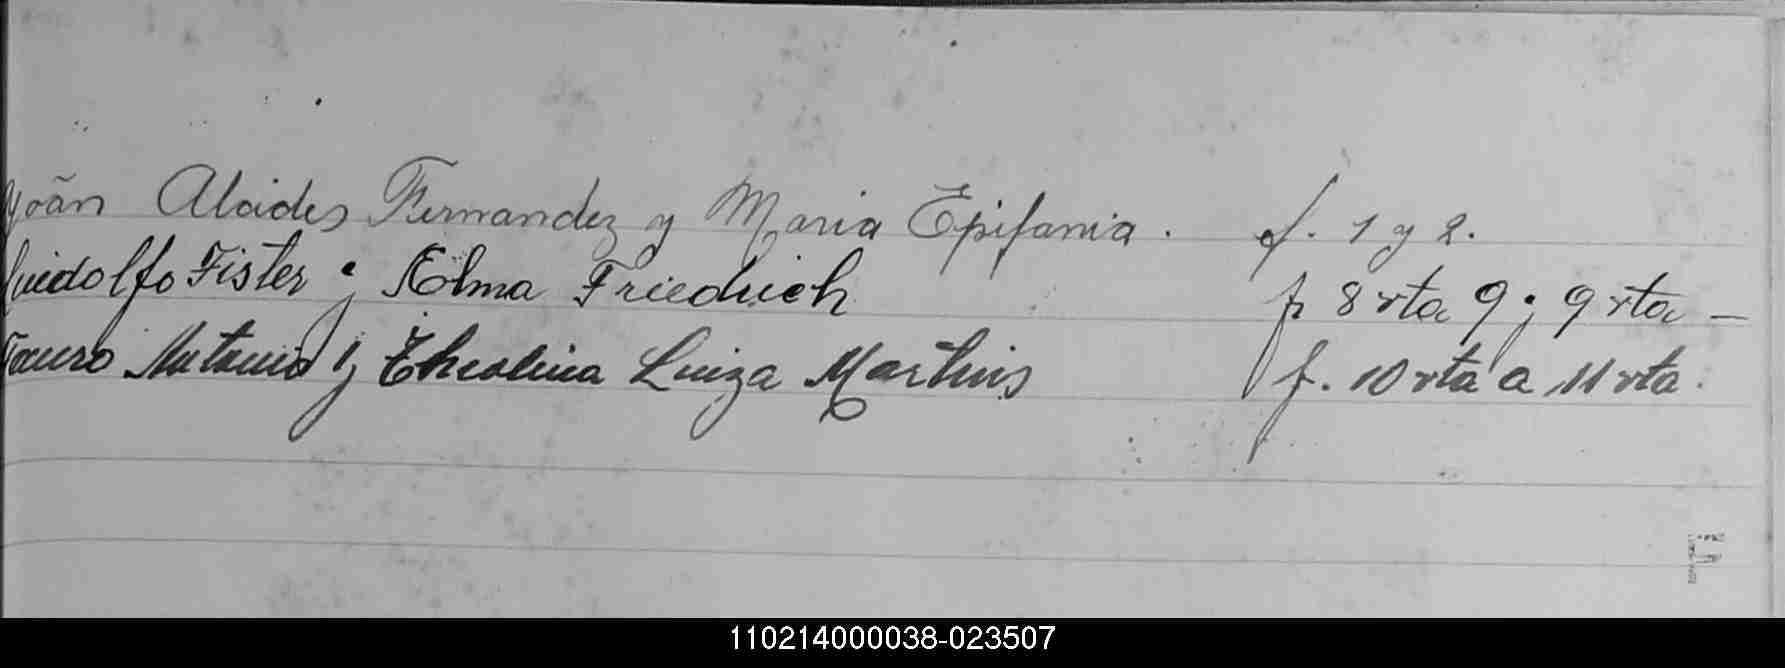 João Alcides Fernandez y Maria Epifania. f. 1 y 2.
Guidolfo Fister y Elma Friedrich f. 8 vta 9 y 9 vta —
Antonio y Theolina Luiza Martins f. 10 vta a 11 vta.
F
110214000038-023507